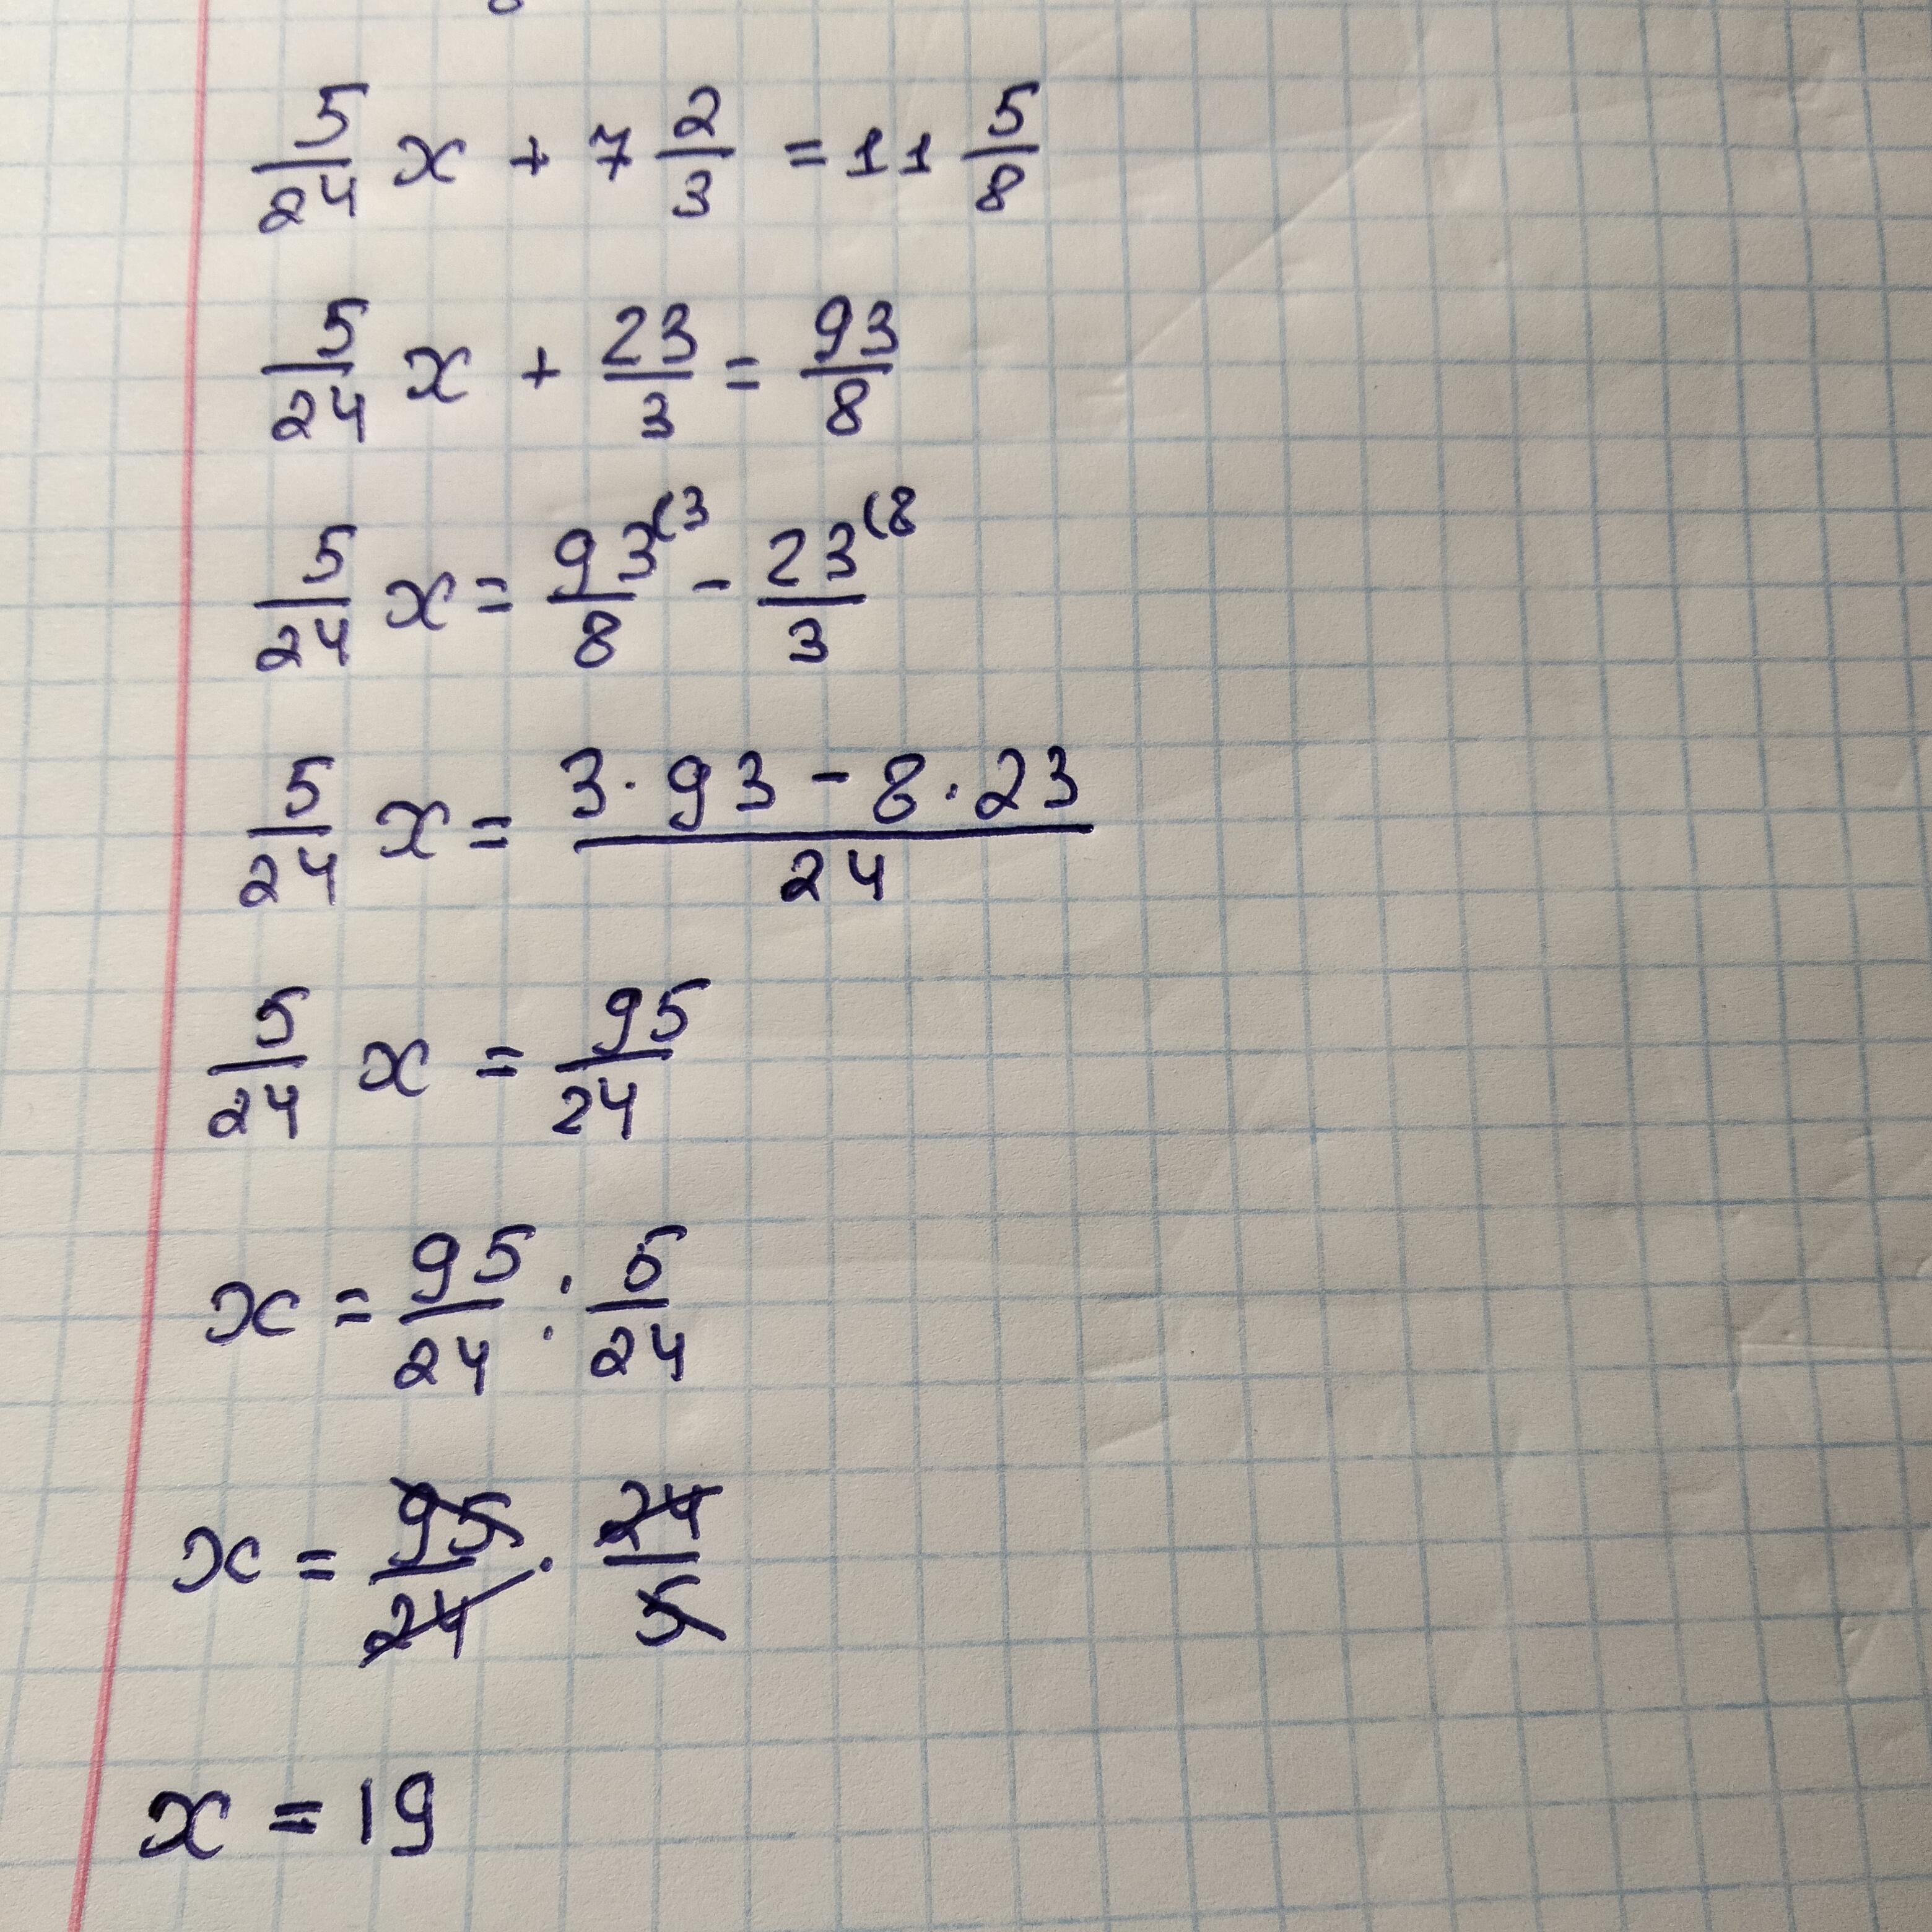 5/24 x + 7 2/3 = 11 5/8
5/24 x + 23/3 = 93/8
5/24 x = 93/8 (3 - 23/3 (8
5/24 x = 3·93 - 8·23 / 24
5/24 x = 95/24
x = 95/24 : 5/24
x = 95/24 · 24/5
x = 19